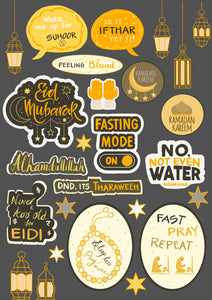 Wake
me up for
SUHOOR
IS IT
IFTHAR
YET ??
FEELING Blessed
RAMADAN
KAREEM
Eid
Mubarak
RAMADAN
KAREEM
FASTING
MODE
ON
NO
NOT EVEN
WATER
#RAMADAN
Alhamdulillah
DND, ITS THARAWEEH
Never
too old
for
EIDI
FAST
PRAY
REPEAT